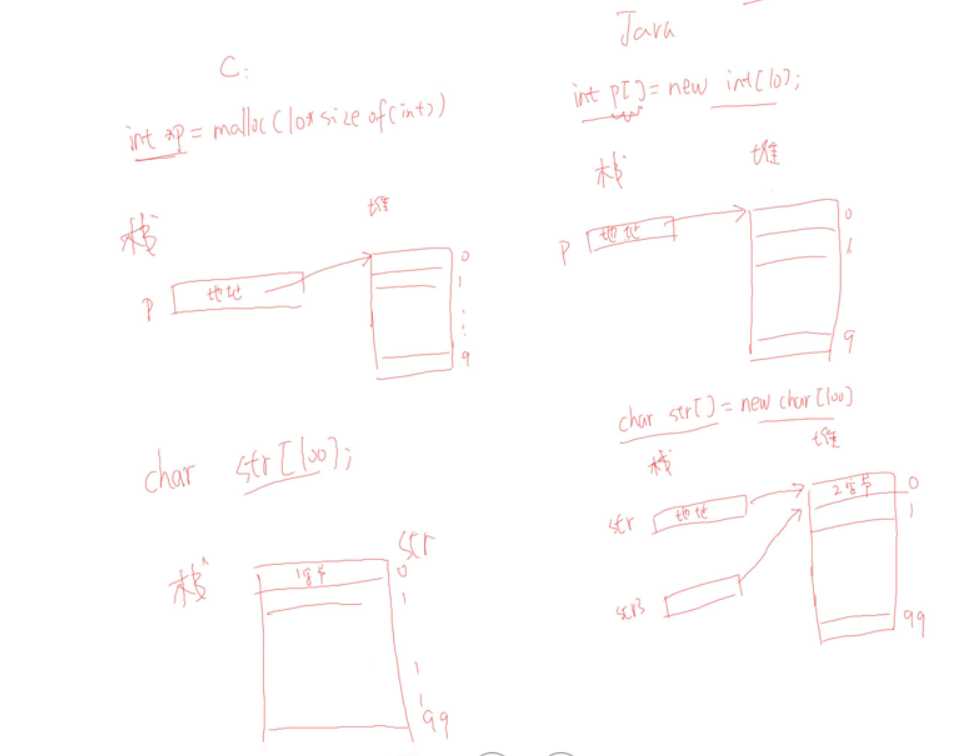 C:
int *p = malloc(10*sizeof(int))
栈
堆
p
地址
0
1
9
char str[100];
str
栈
1字节
0
1
99
Java
int p[] = new int[10];
栈
堆
p
地址
0
1
9
char str[] = new char[100]
栈
堆
str
地址
2字节
0
1
str3
99